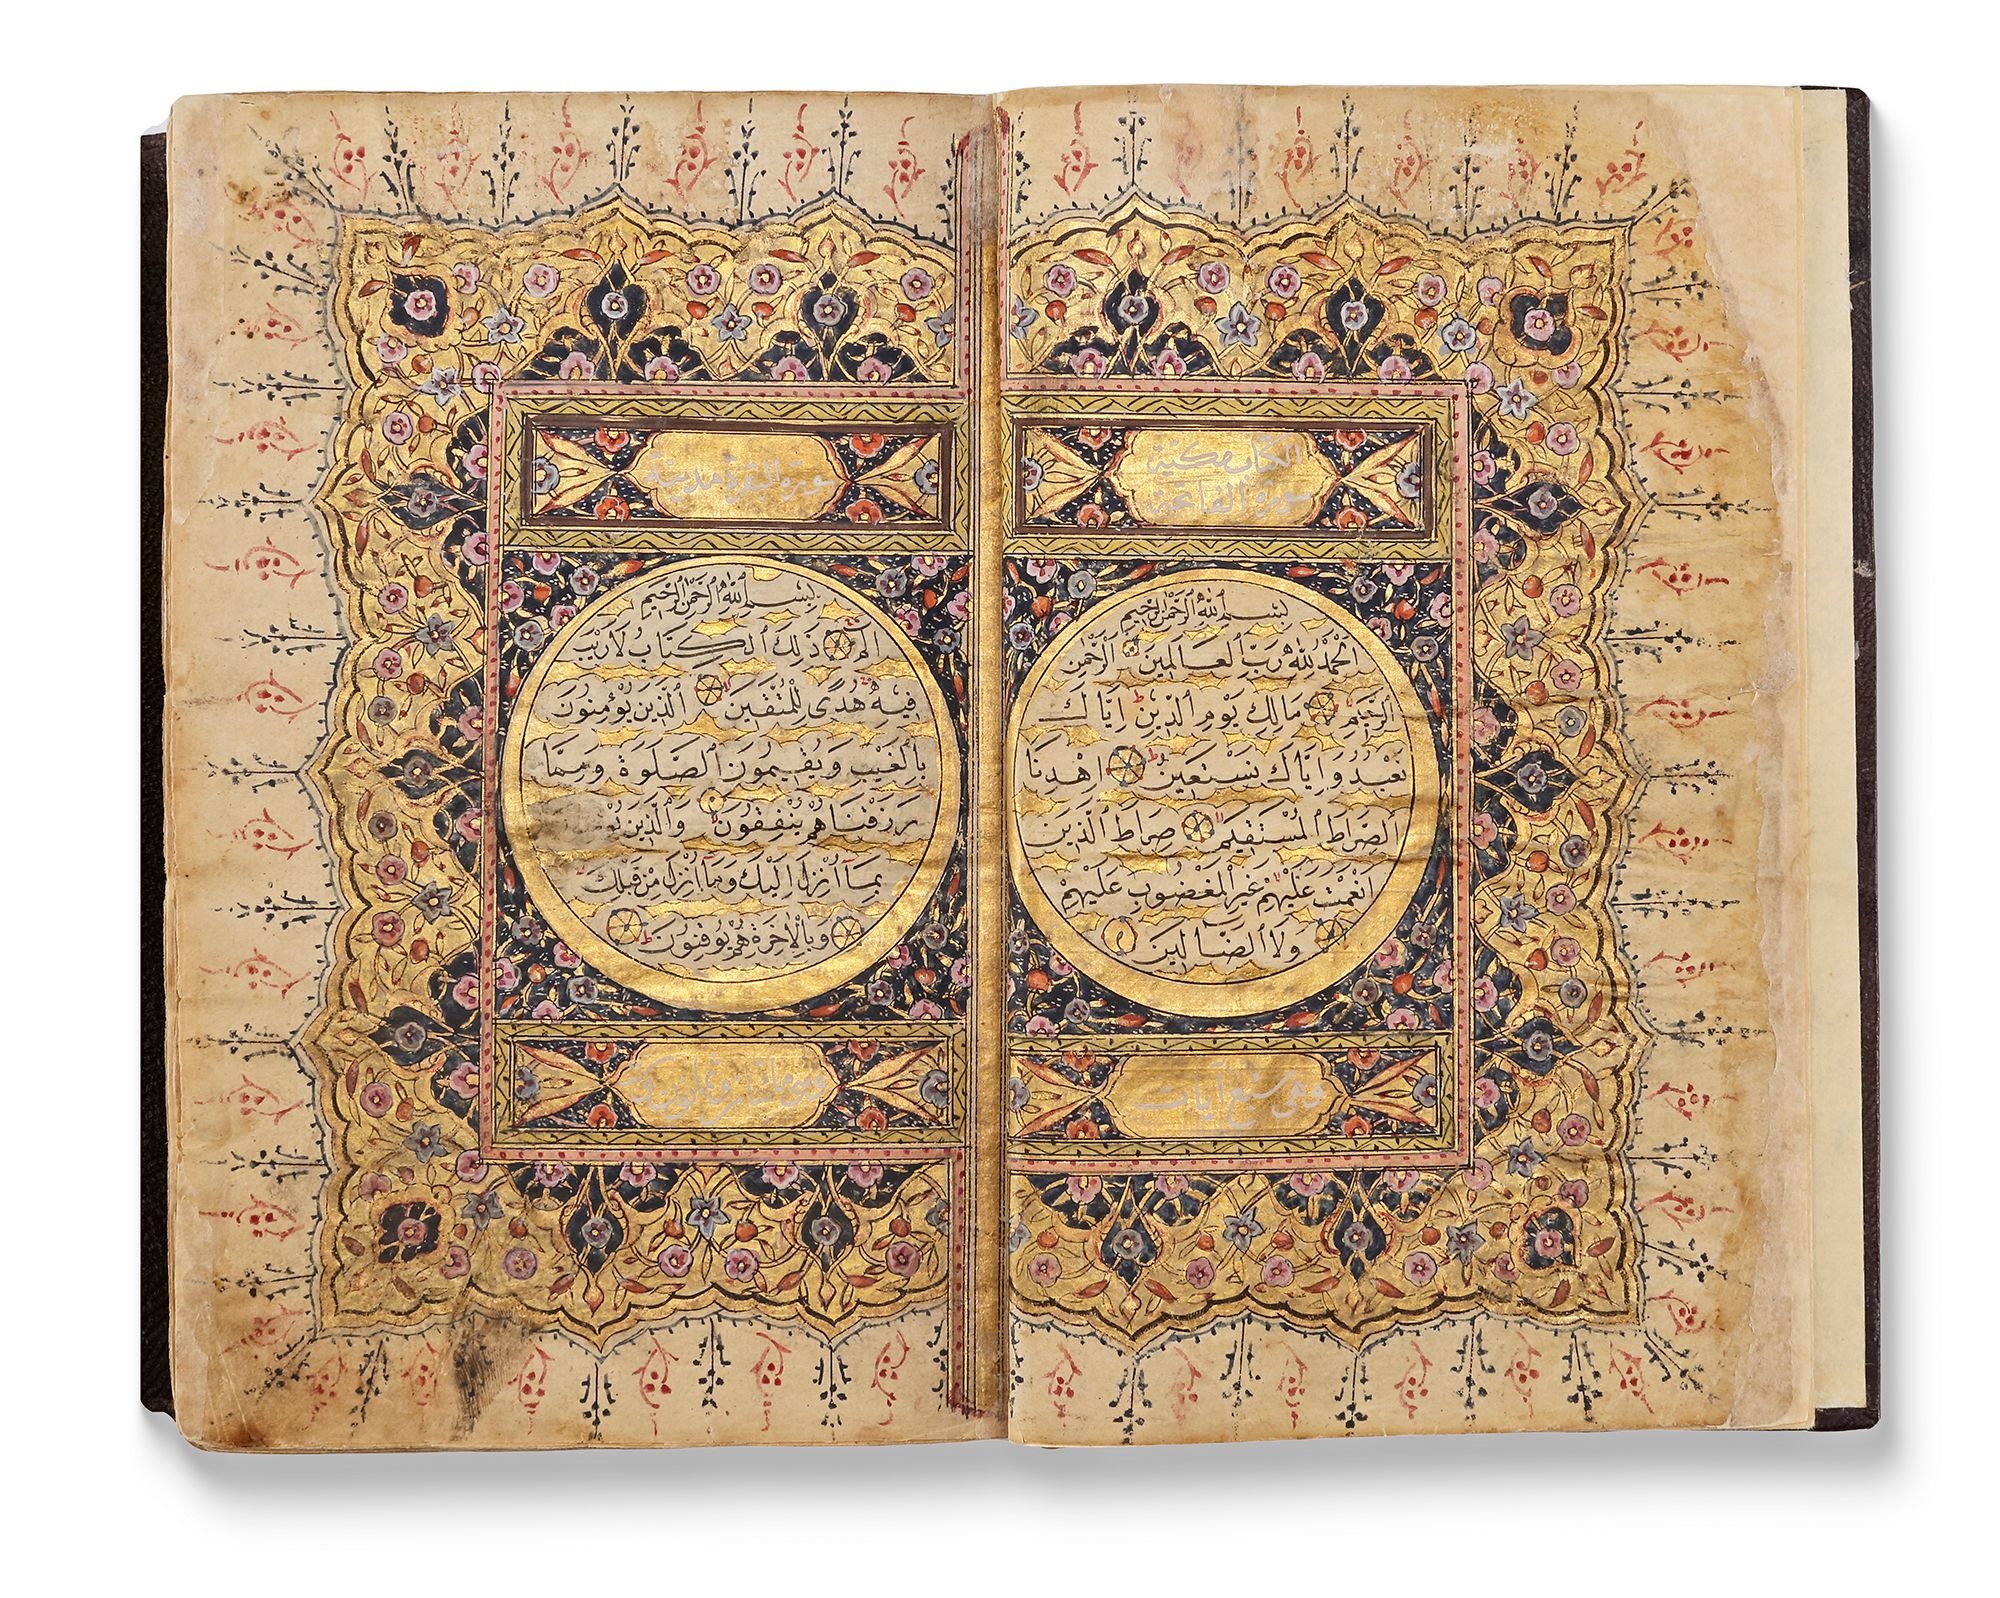 الكتاب مكية
سورة الفاتحة
بِسْمِ ٱللهِ ٱلرَّحْمٰنِ ٱلرَّحِيمِ
اَلْحَمْدُ لِلّٰهِ رَبِّ ٱلْعَالَمِينَ ٱلرَّحْمٰنِ
ٱلرَّحِيمِ مَالِكِ يَوْمِ ٱلدِّينِ اِيَّاكَ
نَعْبُدُ وَاِيَّاكَ نَسْتَعِينُ اِهْدِنَا
ٱلصِّرَاطَ ٱلْمُسْتَقِيمَ صِرَاطَ ٱلَّذِينَ
اَنْعَمْتَ عَلَيْهِمْ غَيْرِ ٱلْمَغْضُوبِ عَلَيْهِمْ
وَلَا ٱلضَّالِّينَ
وهي سبع آيات
سورة البقرة مدنية
بِسْمِ ٱللهِ ٱلرَّحْمٰنِ ٱلرَّحِيمِ
الٓمٓ ذٰلِكَ ٱلْكِتَابُ لَا رَيْبَ
فِيهِ هُدًى لِلْمُتَّقِينَ ٱلَّذِينَ يُؤْمِنُونَ
بِالْغَيْبِ وَيُقِيمُونَ ٱلصَّلٰوةَ وَمِمَّا
رَزَقْنَاهُمْ يُنْفِقُونَ وَٱلَّذِينَ
بِمَآ اُنْزِلَ اِلَيْكَ وَمَآ اُنْزِلَ مِنْ قَبْلِكَ
وَبِالْاٰخِرَةِ هُمْ يُوقِنُونَ
مائتان وثمانون